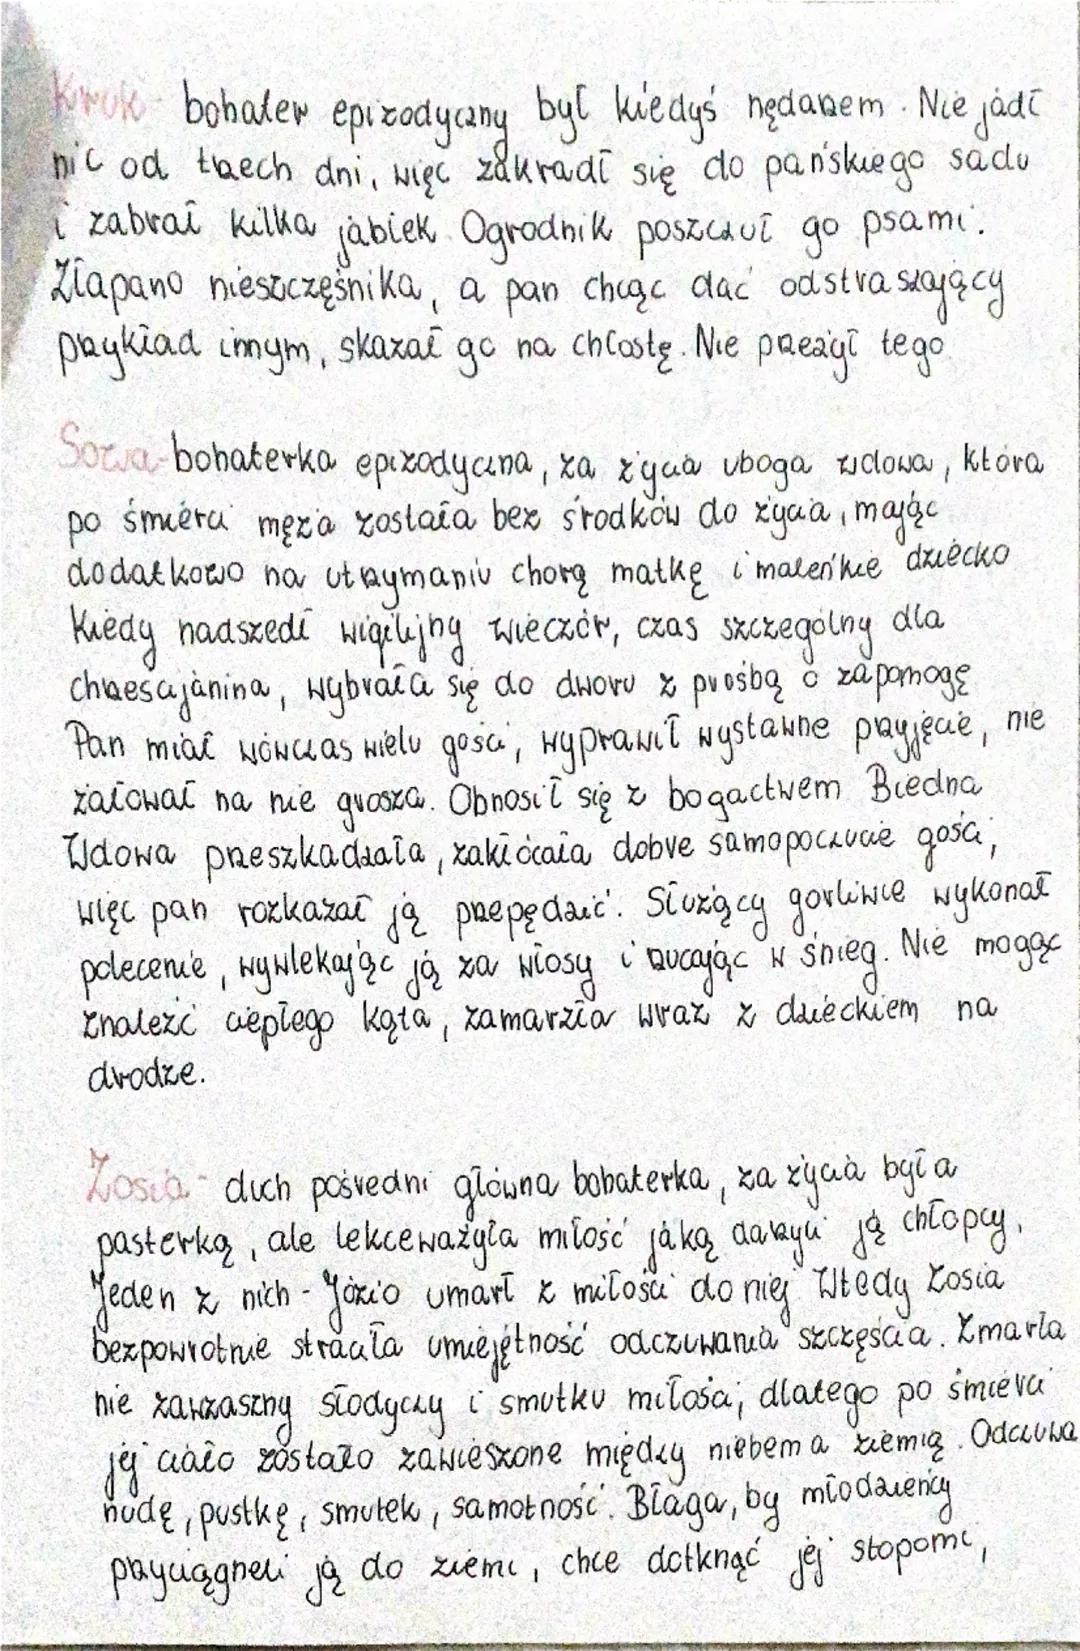 Kruk - bohater epizodyczny był kiedyś nędzarzem. Nie jadł
nic od trzech dni, więc zakradł się do pańskiego sadu
i zabrał kilka jabłek Ogrodnik poszczuł go psami.
Złapano nieszczęśnika, a pan chcąc dać odstraszający
przykład innym, skazał go na chłostę. Nie przeżył tego
Sowa-bohaterka epizodyczna, za życia uboga wdowa, która
po śmierci męża została bez środków do życia, mając
dodatkowo na utrzymaniu chorą matkę i maleńkie dziecko
Kiedy nadszedł wigilijny wieczór, czas szczególny dla
chrześcijanina, wybrała się do dworu z prośbą o zapomogę
Pan miał wówczas wielu gości, wyprawił wystawne przyjęcie, nie
żałował na nie grosza. Obnosił się z bogactwem Biedna
Wdowa przeszkadzała, zakłócała dobre samopoczucie gości,
więc pan rozkazał ją przepędzić. Służący gorliwie wykonał
polecenie, wywlekając ją za włosy i rzucając w śnieg. Nie mogąc
znaleźć ciepłego kąta, zamarzła wraz z dzieckiem na
drodze.
Zosia - duch pośredni główna bohaterka, za życia była
pasterką, ale lekceważyła miłość jaką darzyli ją chłopcy.
Jeden z nich - Józio umarł z miłości do niej Wtedy Zosia
bezpowrotnie straciła umiejętność odczuwania szczęścia. Zmarła
nie zawzaszny słodyczy i smutku miłości, dlatego po śmierci
jej ciało zostało zawieszone między niebem a ziemią. Odczuwa
nudę, pustkę, smutek, samotność. Błaga, by młodzieńcy
przyciągneli ją do ziemi, chce dotknąć jej stopomi,